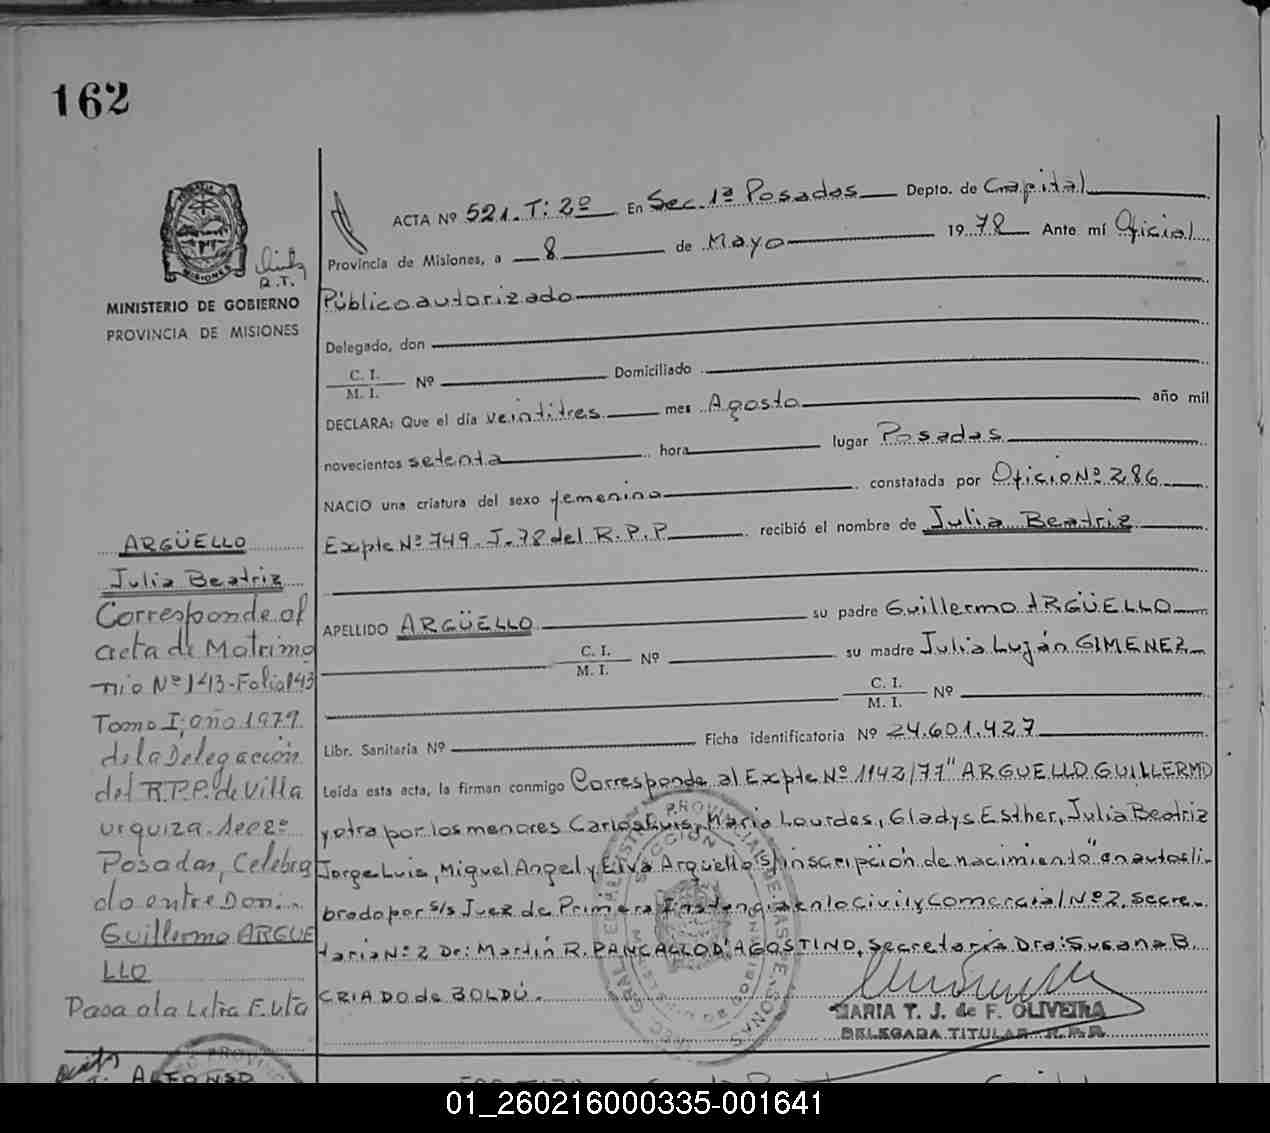 162
ACTA Nº 521. T: 2º En Sec. 1ª Posadas Depto. de Capital
Provincia de Misiones, a 8 de Mayo 1978 Ante mí Oficial
Público autorizado
R.T.
MINISTERIO DE GOBIERNO
PROVINCIA DE MISIONES
Delegado, don
C. I.
M. I. Nº Domiciliado
DECLARA: Que el día veintitres mes Agosto año mil
novecientos setenta hora lugar Posadas
NACIO una criatura del sexo femenino constatada por Oficio Nº 286
Expte Nº 749. J. 78 del R. P. P. recibió el nombre de Julia Beatriz
APELLIDO ARGÜELLO su padre Guillermo ARGÜELLO
C. I.
M. I. Nº su madre Julia Luján GIMENEZ
C. I.
M. I. Nº
Libr. Sanitaria Nº Ficha identificatoria Nº 24.601.427
Leída esta acta, la firman conmigo Corresponde al Expte Nº 1142/77" ARGUELLO GUILLERMO
y otra por los menores Carlos Luis, María Lourdes, Gladys Esther, Julia Beatriz
Jorge Luis, Miguel Angel y Elva Argüello s/inscripción de nacimiento" en autos li-
brado por s/s Juez de Primera Instancia en lo Civil y Comercial Nº 2, Secre-
taria Nº 2 Dr: Martín R. PANCALLO D'AGOSTINO, Secretaria Dra: Susana B.
CRIADO de BOLDÚ.
MARIA T. J. de F. OLIVEIRA
DELEGADA TITULAR R.P.P.
ARGÜELLO
Julia Beatriz
Corresponde al
acta de Matrimo
nio Nº 143-Folio 143
Tomo I, año 1979.
de la Delegación
del R.P.P. de Villa
urquiza. 1ee2º
Posadas, Celebra
do entre Don
Guillermo ARGUE
LLO
Pasa a la Letra F. vta
ALFONSO
01_260216000335-001641